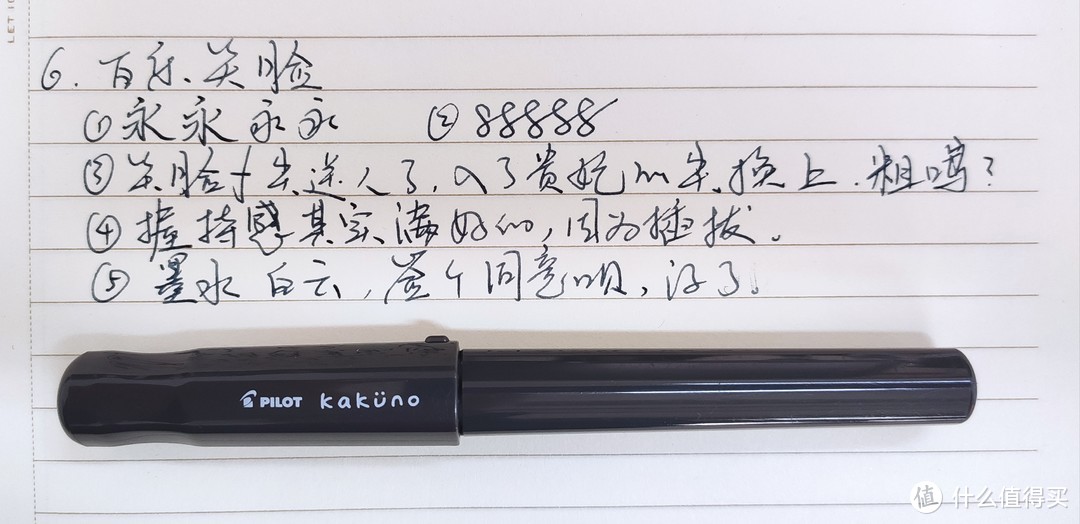 6. 百乐、笑脸
①永永永永 ②88888
③笑脸片尖送人了,入了贵妃的尖换上.粗吗?
④握持感其实满好的,因为插拔。
⑤墨水白云,签个同意呗,没了。
PILOT kaküno
值 什么值得买